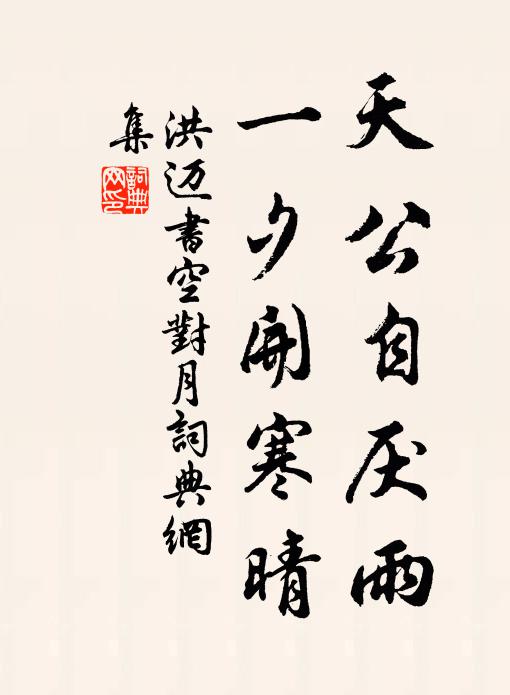 天公自厌雨
一夕開寒晴
洪迈書空對月詞典網
集
詞典网印